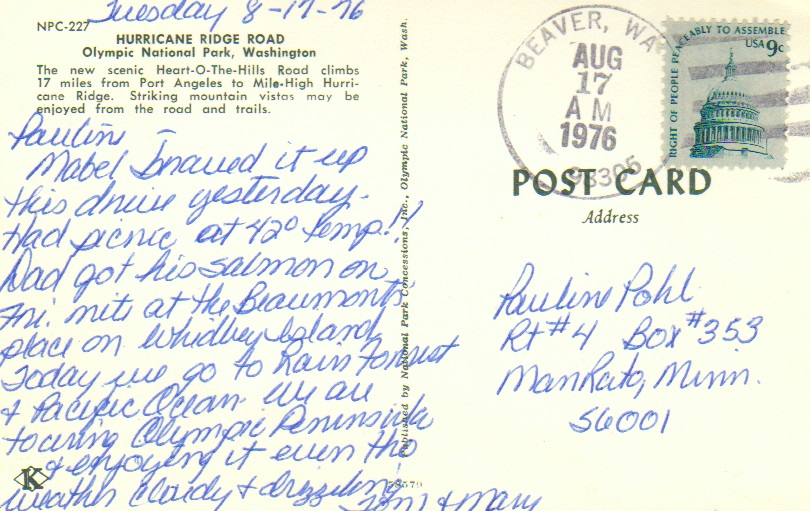 Tuesday 8-17-76
NPC-227
HURRICANE RIDGE ROAD
Olympic National Park, Washington
The new scenic Heart-O-The-Hills Road climbs
17 miles from Port Angeles to Mile-High Hurri-
cane Ridge. Striking mountain vistas may be
enjoyed from the road and trails.
Pauline -
Mabel & I braved it up
this drive yesterday -
Had picnic at 42° temp.!!
Dad got his salmon on
Fri. nite at the Beaumonts
place on Whidbey Island
Today we go to Rain Forrest
& Pacific Ocean. We are
touring Olympic Peninsula
& enjoying it even tho
weather cloudy & drizzling
Tom & Mary
K
Published by National Park Concessions, Inc., Olympic National Park, Wash.
BEAVER, WA
AUG
17
AM
1976
98305
RIGHT OF PEOPLE PEACEABLY TO ASSEMBLE
USA 9c
POST CARD
Address
Pauline Pohl
Rt #4 Box #353
Mankato, Minn.
56001